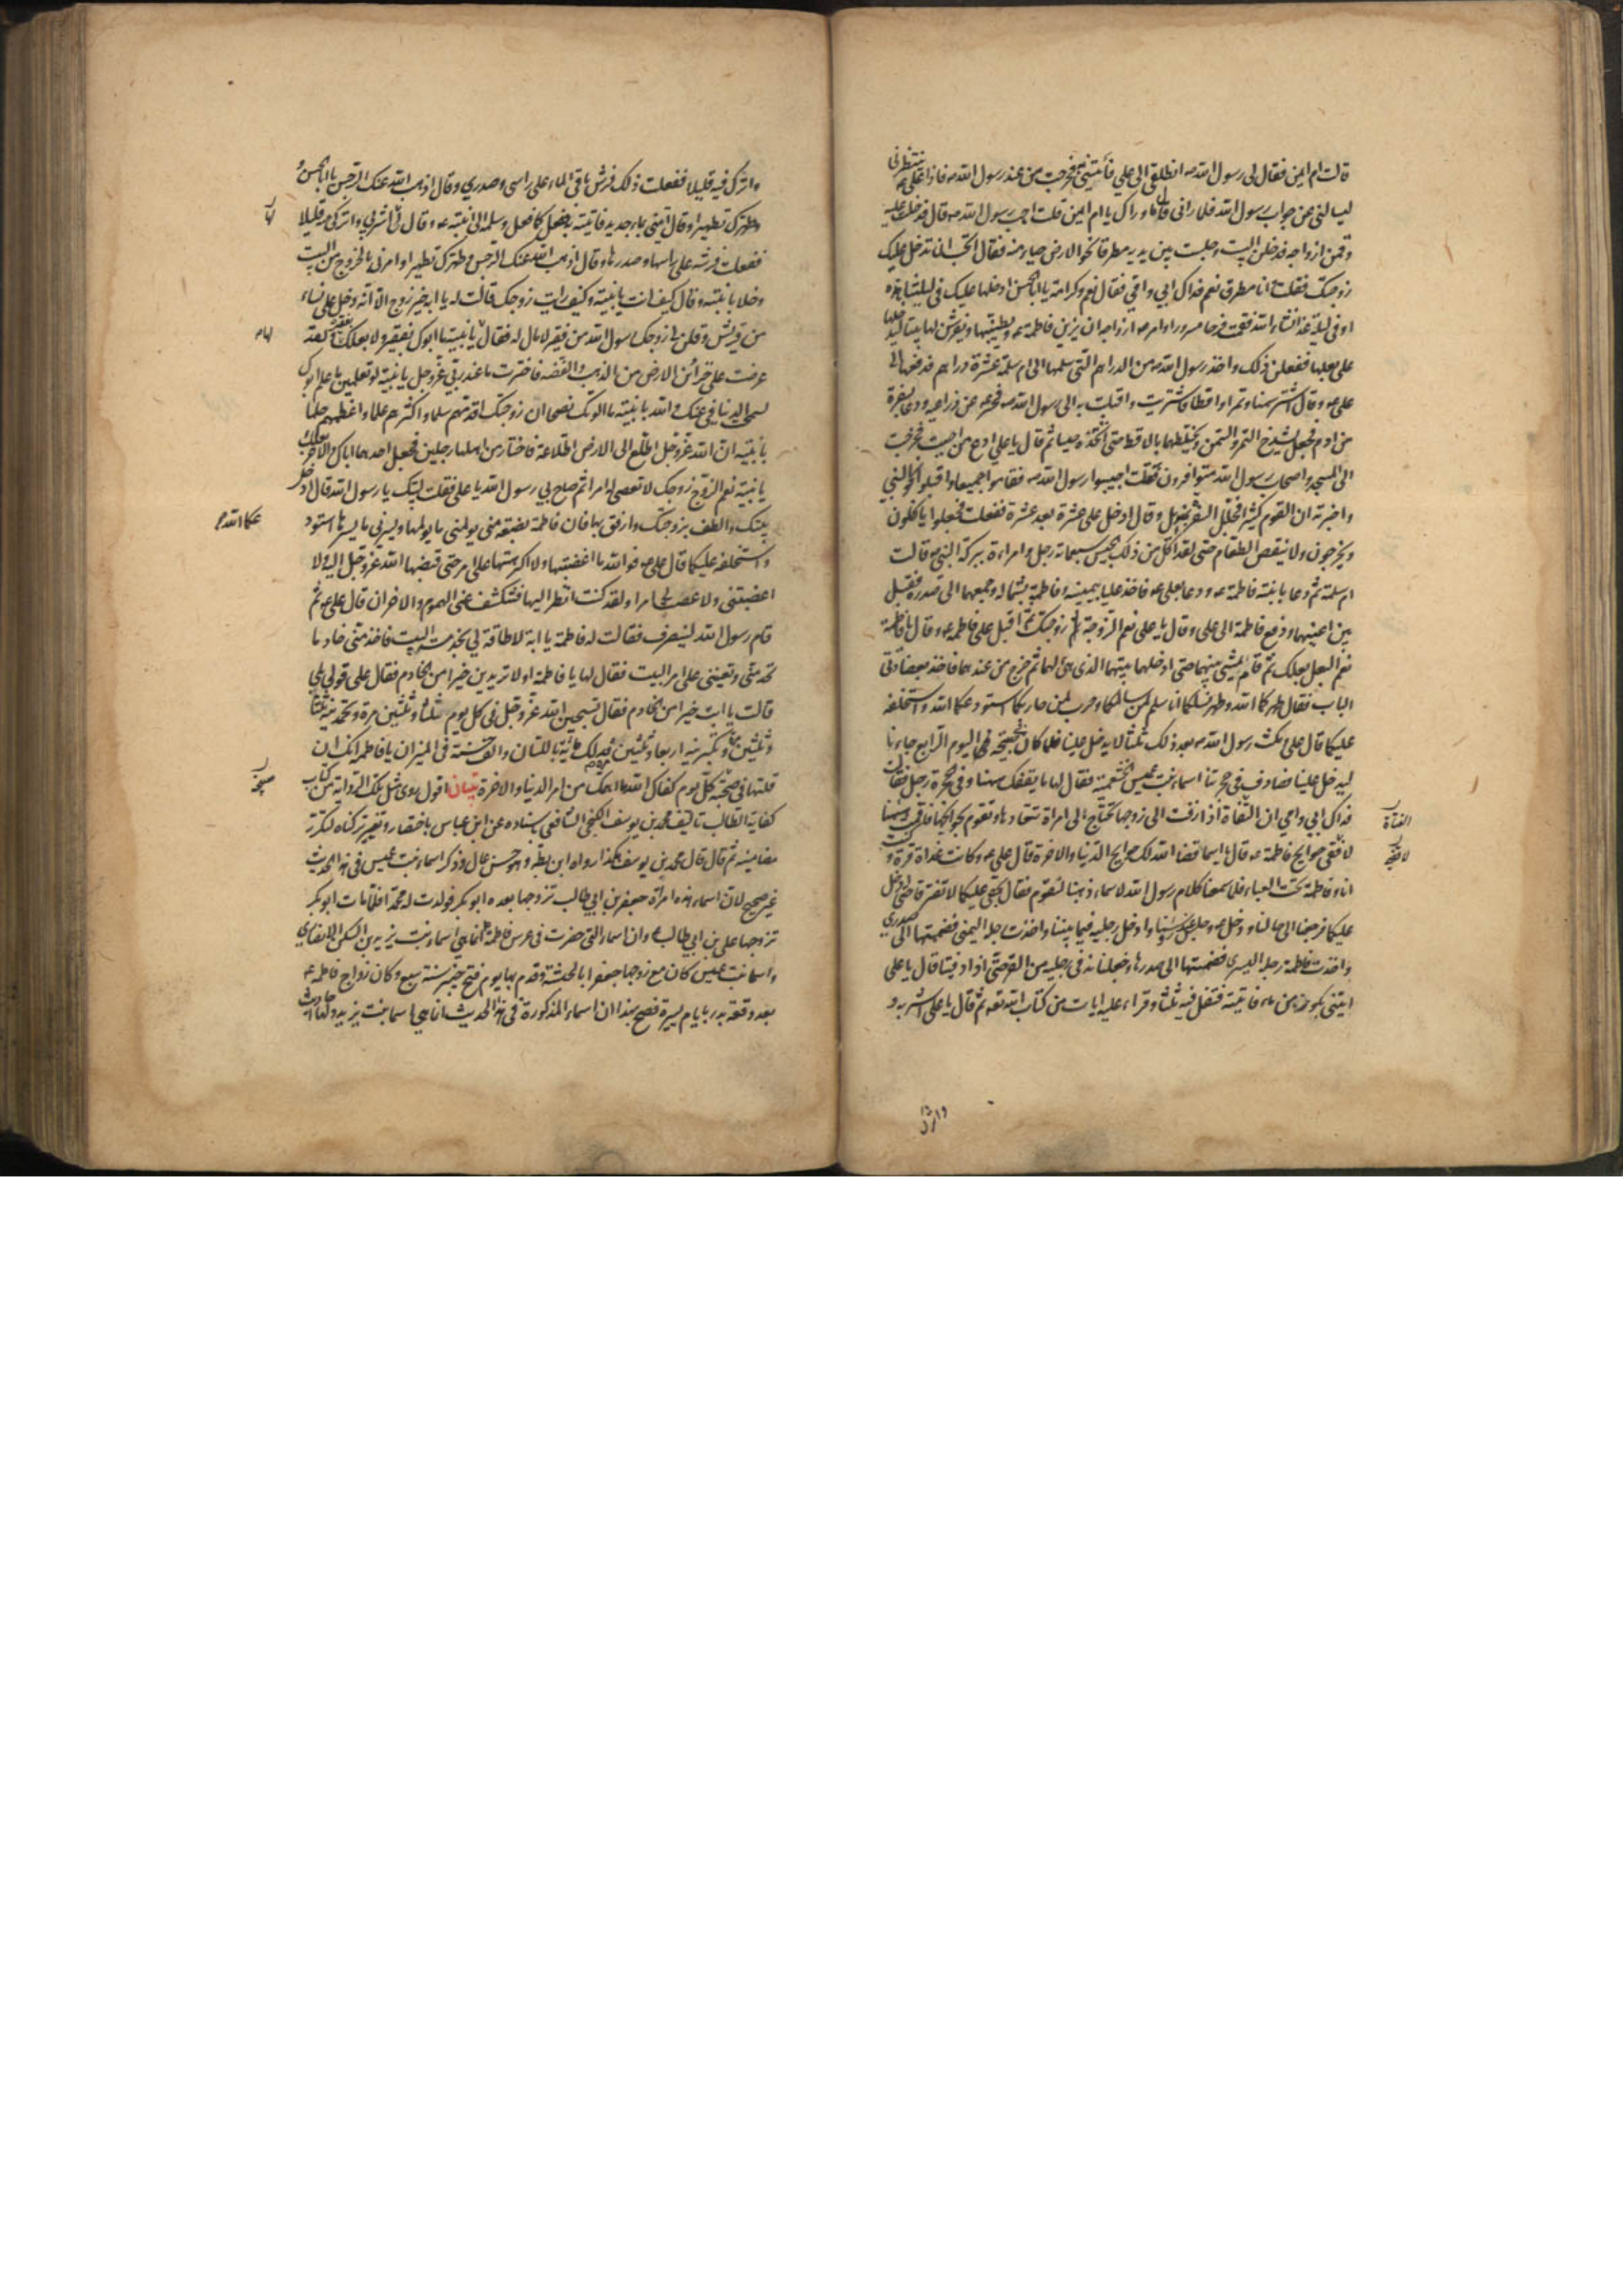 قالت ام ايمن فقال لي رسول الله ص انطلقي الى علي فأتيني به فخرجت من عند رسول الله ص فاذا علي ع ينتظرني
ليسالني عن جواب رسول الله فلما راني قال ما وراك يا ام ايمن قلت اجب رسول الله ص قال فدخلت عليه
وقمن ازواجه فدخلن البيت وجلست بين يديه مطرقا نحو الارض حياء منه فقال اتحب ان تدخل عليك
زوجتك فقلت وانا مطرق نعم فداك ابي وامي فقال نعم وكرامة يا ابا الحسن ادخلها عليك في ليلتنا هذه
او في ليلة غد انشاء الله فقمت فرحا مسرورا وامر ص ازواجه ان يزين فاطمة ع ويطيبنها ويفرشن لها بيتا ليدخلنها
على بعلها ففعلن ذلك واخذ رسول الله ص من الدراهم التي سلمها الى ام سلمة عشرة دراهم فدفعها الى
علي ع وقال اشتر سمنا وتمرا واقطا فاشتريت واقبلت به الى رسول الله ص فحسر ص عن ذراعيه ودعا بسفرة
من ادم فجعل يشدخ التمر والسمن ويخلطهما بالاقط حتى اتخذه حيسا ثم قال يا علي ادع من احببت فخرجت
الى المسجد واصحاب رسول الله متوافرون فقلت اجيبوا رسول الله ص فقاموا جميعا واقبلوا نحو النبي
واخبرته ان القوم كثير فجلل السفرة بمنديل وقال ادخل علي عشرة بعد عشرة ففعلت فجعلوا ياكلون
ويخرجون ولا ينقص الطعام حتى لقد اكل من ذلك الحيس سبعمائة رجل وامراءة ببركة النبي ص قالت
ام سلمة ثم دعا بابنته فاطمة ع ودعا بعلي ع فاخذ عليا بيمينه وفاطمة بشماله وجمعهما الى صدره فقبل
بين اعينهما ودفع فاطمة الى علي وقال يا علي نعم الزوجة زوجتك ثم اقبل على فاطمة ع وقال يا فاطمة
نعم البعل بعلك ثم قام يمشي بينهما حتى ادخلهما بيتهما الذي هيئ لهما ثم خرج من عندهما فاخذ بعضادتي
الباب فقال طهركما الله وطهر نسلكما انا سلم لمن سالمكما وحرب لمن حاربكما استودعكما الله واستخلفه
عليكما قال علي ومكث رسول الله ص بعد ذلك ثلثا لا يدخل علينا فلما كان صبيحة اليوم الرابع جاءنا
ليدخل علينا فصادف في حجرتنا اسماء بنت عميس الخثعمية فقال لها ما يقفك ههنا وفي الحجرة رجل فقالت
فداك ابي وامي ان الفتاة اذا زفت الى زوجها تحتاج الى امراة تتعاهدها وتقوم بحوائجها فاقمت ههنا
لاقضي حوايج فاطمة ع قال يا اسما قضا الله لك حوايج الدنيا والاخرة قال علي ع وكانت غداة قرة وكنت
انا وفاطمة تحت العباء فلما سمعنا كلام رسول الله لاسماء ذهبنا لنقوم فقال بحقي عليكما لا تفترقا حتى ادخل
عليكما فرجعنا الى حالنا ودخل ص وجلس عند رؤسنا وادخل رجليه فيما بيننا واخذت رجله اليمنى فضممتها الى صدري
واخذت فاطمة رجله اليسرى فضمتها الى صدرها وجعلنا ندفي رجليه من القر حتى اذا دفيتا قال يا علي
ايتني بكوز من ماء فاتيته فتفل فيه ثلثا وقراء عليه ايات من كتاب الله تعه ثم قال يا علي اشربه و
الفتاة
واترك فيه قليلا ففعلت ذلك فرش باقي الماء على راسي وصدري وقال اذهب الله عنك الرجس يا ابا الحسن و
طهرك تطهيرا وقال ايتني بماء جديد فاتيته به ففعل كما فعل وسلمه الى ابنته ع وقال لها اشربي واتركي منه قليلا
ففعلت فرشه على راسها وصدرها وقال اذهب الله عنك الرجس وطهرك تطهيرا وامرني بالخروج من البيت
وخلا بابنته وقال كيف انت يا بنية وكيف رايت زوجك قالت له يا ابه خير زوج الا انه دخل علي نساء
من قريش وقلن لي زوجك رسول الله من فقير لا مال له فقال يا بنية ما ابوك بفقير ولا بعلك بفقير ولقد
عرضت علي خزائن الارض من الذهب والفضه فاخترت ما عند ربي عز وجل يا بنية لو تعلمين ما علم ابوك
لسمجت الدنيا في عينك والله يا بنية ما الوتك نصحا ان زوجتك اقدمهم سلما واكثرهم علما واعظمهم حلما
يا بنية ان الله عز وجل اطلع الى الارض اطلاعة فاختار من اهلها رجلين فجعل احدهما اباك والاخر بعلك
يا بنية نعم الزوج زوجك لا تعصي له امرا ثم صاح بي رسول الله يا علي فقلت لبيك يا رسول الله قال ادخل
بيتك والطف بزوجتك وارفق بها فان فاطمة بضعة مني يولمني ما يولمها ويسرني ما يسرها استود
عكما الله
واستخلفه عليكما قال علي ع فوالله ما اغضبتها ولا اكرهتها على امر حتى قبضها الله عز وجل اليه ولا
اغضبتني ولا عصت لي امرا ولقد كنت انظر اليها فتنكشف عني الهموم والاحزان قال علي ع ثم
قام رسول الله لينصرف فقالت له فاطمة يا ابة لا طاقة لي بخدمة البيت فاخدمني خادما
تخدمني وتعينني على امر البيت فقال لها يا فاطمة اولا تريدين خيرا من الخادم فقال علي قولي بلى
قالت يا ابت خيرا من الخادم فقال تسبحين الله عز وجل في كل يوم ثلثا وثلثين مرة وتحمدينه ثلثا
وثلثين مرة وتكبرينه اربعا وثلثين فذلك مائة باللسان والف حسنة في الميزان يا فاطمه انك ان
قلتها في صبيحة كل يوم كفاك الله ما اهمك من امر الدنيا والاخرة بيان اقول روى مثل تلك الرواية من كتاب
كفاية الطالب تاليف محمد بن يوسف الكنجي الشافعي باسناده عن ابن عباس باختصار وتغيير تركناه لتكرر
مضامينه ثم قال قال محمد بن يوسف هكذا رواه ابن بطة وهو حسن عال وذكر اسماء بنت عميس في هذا الحديث
غير صحيح لان اسماء هذه امراة جعفر بن ابي طالب تزوجها بعده ابو بكر فولدت له محمدا فلما مات ابو بكر
تزوجها علي بن ابي طالب وان اسماء التي حضرت في عرس فاطمة انما هي اسماء بنت يزيد بن السكن الانصاري
واسماء بنت عميس كان مع زوجها جعفر بالحبشة وقدم بها يوم فتح خيبر سنة سبع وكان زواج فاطمه ع
بعد وقعة بدر بايام يسيرة فصح بهذا ان اسماء المذكورة في هذا الحديث انما هي اسما بنت يزيد ولها احاديث